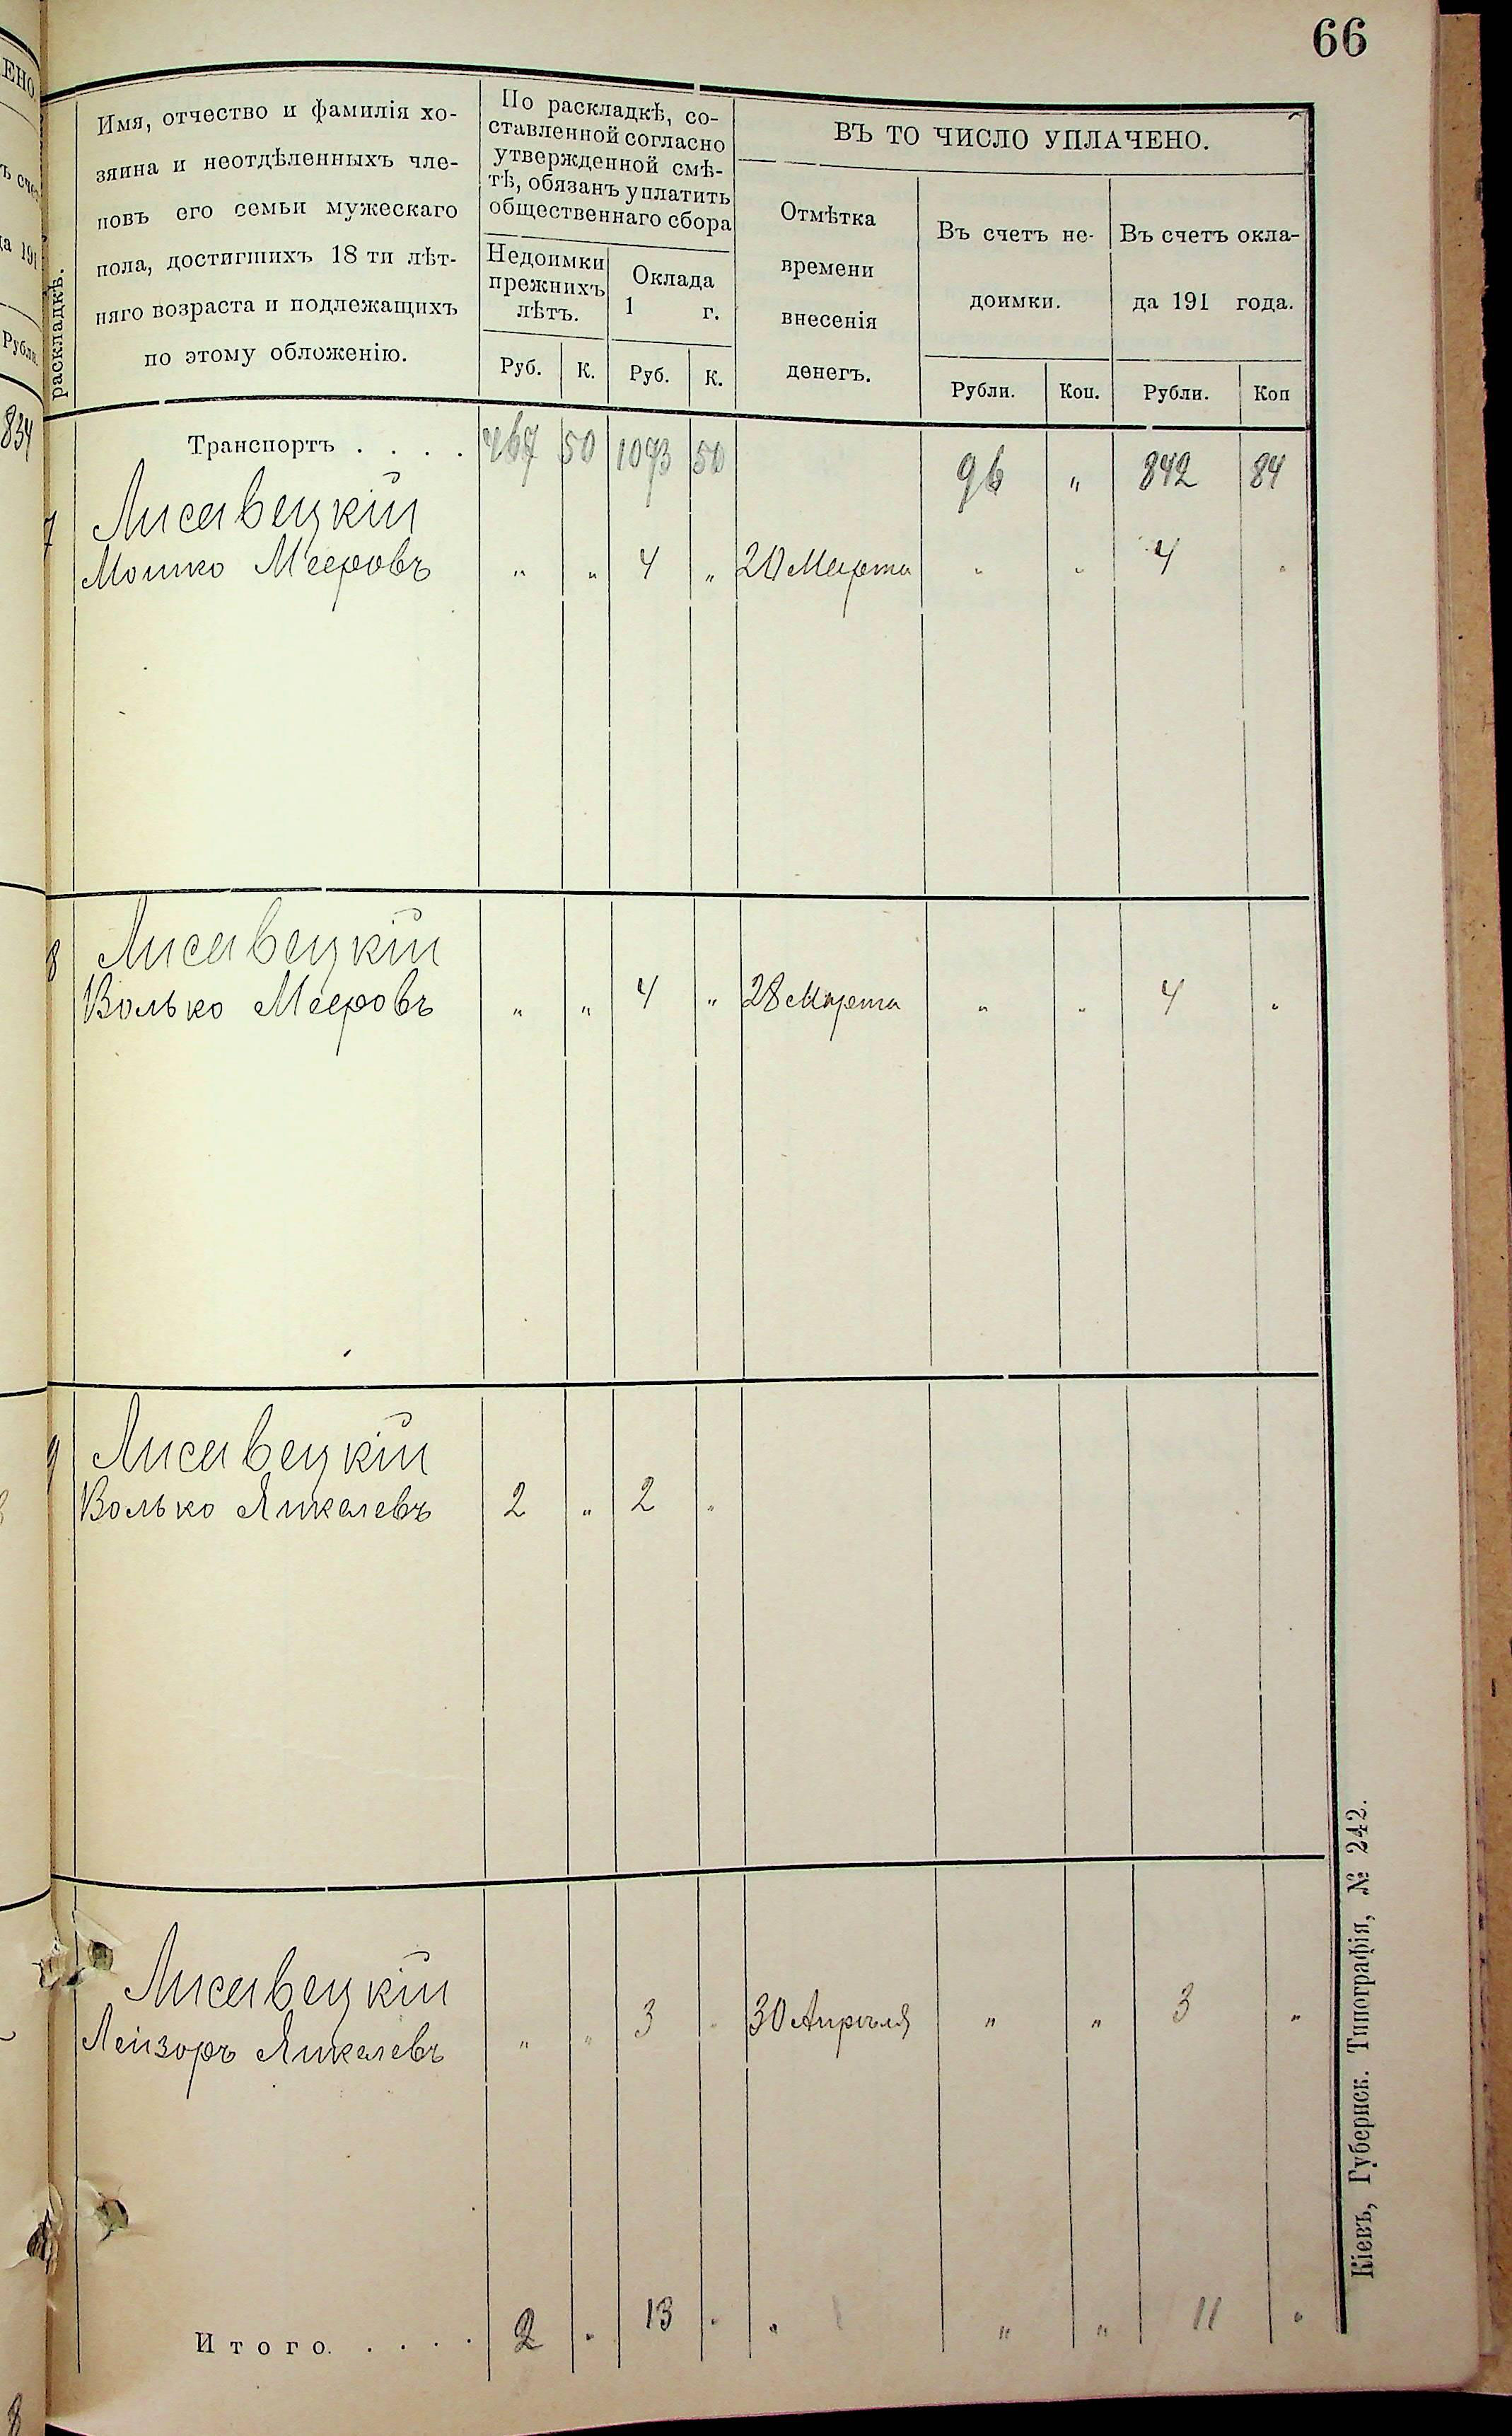 66
раскладкѣ.
Имя, отчество и фамилія хо-
зяина и неотдѣленныхъ чле-
новъ его семьи мужескаго
пола, достигшихъ 18 ти лѣт-
няго возраста и подлежащихъ
по этому обложенію.
По раскладкѣ, со-
ставленной согласно
утвержденной смѣ-
тѣ, обязанъ уплатить
общественнаго сбора
Недоимки
прежнихъ
лѣтъ.
Оклада
1 г.
Руб. К. Руб. К.
ВЪ ТО ЧИСЛО УПЛАЧЕНО.
Отмѣтка
времени
внесенія
денегъ.
Въ счетъ не-
доимки.
Въ счетъ окла-
да 191 года.
Рубли. Коп. Рубли. Коп
Транспортъ . . . . 50 1093 50 96 " 842 84
7 Лисавецкій
Мошко Мееровъ " " 4 " 20 Марта " " 4 "
8 Лисавецкій
Волько Мееровъ " " 4 " 28 Марта " " 4 "
9 Лисавецкій
Волько Янкелевъ 2 " 2 "
Лисавецкій
Лейзоръ Янкелевъ " " 3 " 30 Апрѣля " " 3 "
Итого. . . . . 2 " 13 " " " " 11 "
Кіевъ, Губернск. Типографія, № 242.